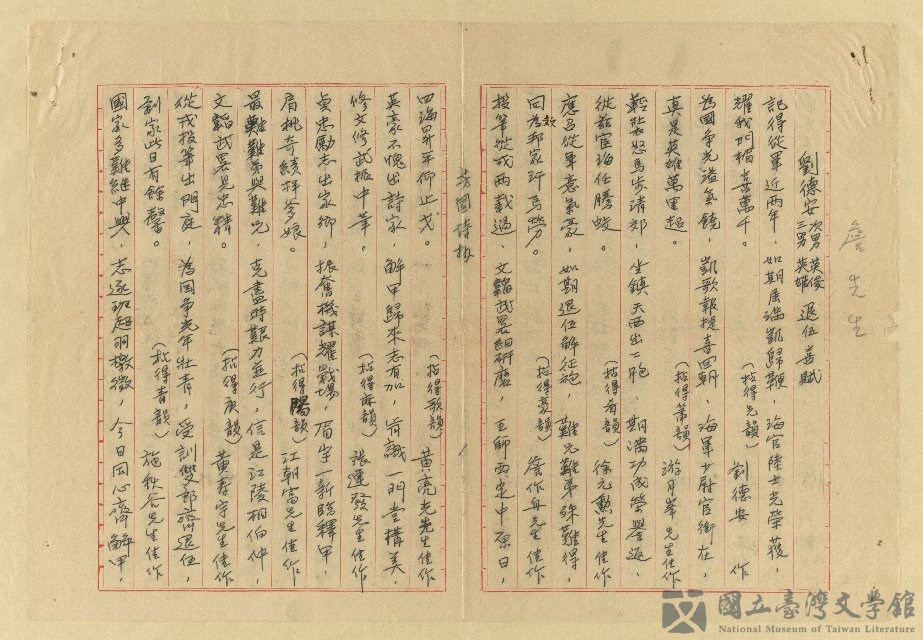 詹先生
劉德安次男英俊三男英雄退伍喜賦
記得從軍近兩年，如期展滿凱歸鞭，海官陸士光榮獲，
耀我門楣喜萬千。（拈得先韻）劉德安作
為國爭光溢氣鏡，凱歌報捷喜回朝，海軍少尉官銜在，
真是英雄萬里超。（拈得蕭韻）游月峯先生佳作
輕裘怒馬步清郊，坐鎮天西出一胞，期滿功成榮譽返，
從茲宦海任騰蛟。（拈得肴韻）徐元勳先生佳作
應召從軍意氣豪，如期退伍解征袍，難兄難弟殊難得，
同為邦家効馬勞。（拈得豪韻）詹作舟先生佳作
投筆從戎兩載過，文韜武略細研磨，王師西定中原日，
芳園詩抄
四海昇平仰止戈。（拈得歌韻）黃亮光先生佳作
英豪不愧出詩家，解甲歸來志有加，肯識一門堂構美，
修文修武振中華。（拈得麻韻）張達發先生佳作
貞忠勵志出家鄉，振奮機謀耀戰場，眉宇一新臨釋甲，
肩挑奇績拜爹娘。（拈得陽韻）江朝富先生佳作
最難難弟與難兄，克盡時艱力並行，信是江陵稱伯仲，
文韜武略見忠精。（拈得庚韻）黃春宇先生佳作
從戎投筆出門庭，為国爭光年壯青，受訓雙郎齊退伍，
劉家此日有餘馨。（拈得青韻）施秋谷先生佳作
國家多難繼中興，志逐班超羽檄徵，今日同心齊解甲，
國立臺灣文學館
National Museum of Taiwan Literature